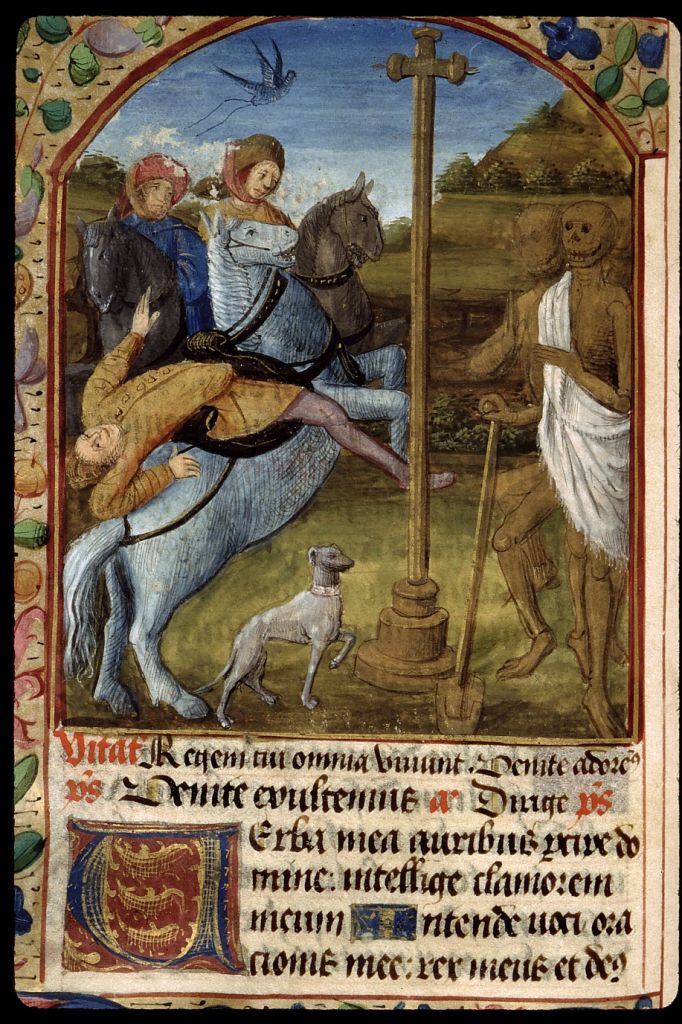 Vitat Regem cui omnia viuunt. Venite adorem9
ps Venite exultemus a Dirige ps
Verba mea auribus percipe do
mine: intellige clamorem
meum Intende uoci ora
cionis mee: rex meus et de9